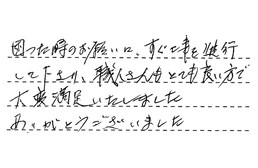 困った時のお願いに、すぐ工事を進行
して下さり、職人さんもとても良い方で
大変満足いたしました
ありがとうございました